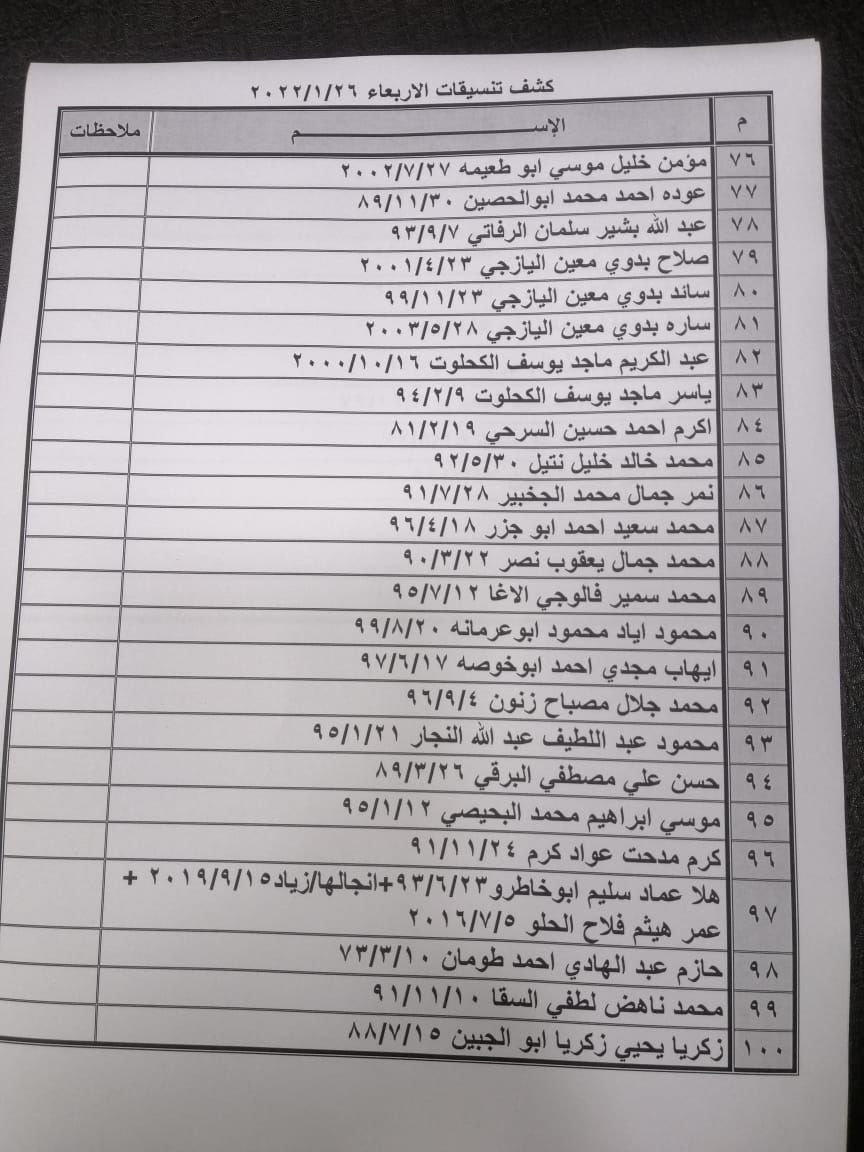 كشف تنسيقات الاربعاء ٢٠٢٢/١/٢٦
م الإســـــــم ملاحظات
٧٦ مؤمن خليل موسي ابو طعيمه ٢٠٠٢/٧/٢٧
٧٧ عوده احمد محمد ابوالحصين ٨٩/١١/٣٠
٧٨ عبد الله بشير سلمان الرفاتي ٩٣/٩/٧
٧٩ صلاح بدوي معين اليازجي ٢٠٠١/٤/٢٣
٨٠ سائد بدوي معين اليازجي ٩٩/١١/٢٣
٨١ ساره بدوي معين اليازجي ٢٠٠٣/٥/٢٨
٨٢ عبد الكريم ماجد يوسف الكحلوت ٢٠٠٠/١٠/١٦
٨٣ ياسر ماجد يوسف الكحلوت ٩٤/٢/٩
٨٤ اكرم احمد حسين السرحي ٨١/٢/١٩
٨٥ محمد خالد خليل نتيل ٩٢/٥/٣٠
٨٦ نمر جمال محمد الجخبير ٩١/٧/٢٨
٨٧ محمد سعيد احمد ابو جزر ٩٦/٤/١٨
٨٨ محمد جمال يعقوب نصر ٩٠/٣/٢٢
٨٩ محمد سمير فالوجي الاغا ٩٥/٧/١٢
٩٠ محمود اياد محمود ابوعرمانه ٩٩/٨/٢٠
٩١ ايهاب مجدي احمد ابوخوصه ٩٧/٦/١٧
٩٢ محمد جلال مصباح زنون ٩٦/٩/٤
٩٣ محمود عبد اللطيف عبد الله النجار ٩٥/١/٢١
٩٤ حسن علي مصطفي البرقي ٨٩/٣/٢٦
٩٥ موسي ابراهيم محمد البحيصي ٩٥/١/١٢
٩٦ كرم مدحت عواد كرم ٩١/١١/٢٤
٩٧ هلا عماد سليم ابوخاطرو٩٣/٦/٢٣+انجالها/زياد٢٠١٩/٩/١٥ +
عمر هيثم فلاح الحلو ٢٠١٦/٧/٥
٩٨ حازم عبد الهادي احمد طومان ٧٣/٣/١٠
٩٩ محمد ناهض لطفي السقا ٩١/١١/١٠
١٠٠ زكريا يحيي زكريا ابو الجبين ٨٨/٧/١٥